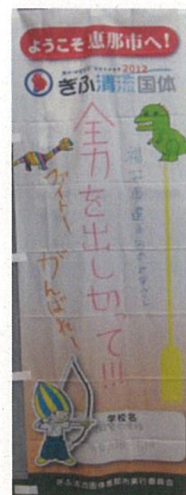 ようこそ恵那市へ!
2012
ぎふ清流国体
全力を出し切って!!!
ファイトー がんばれー
学校名
ぎふ清流国体恵那市実行委員会